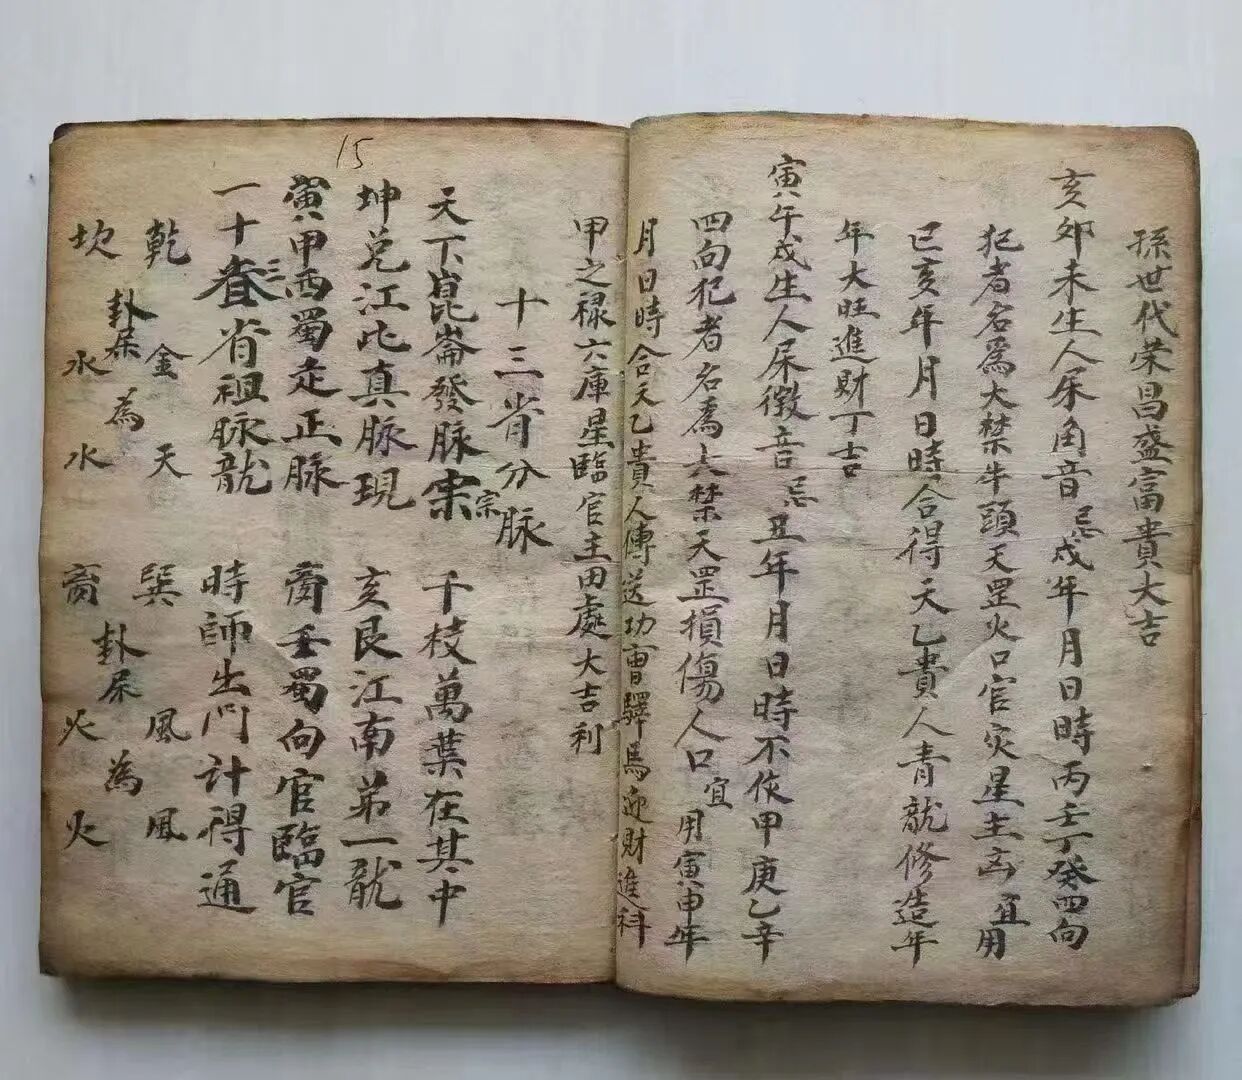 孫世代荣昌盛富貴大吉
亥卯未生人屎角音忌戌年月日時丙壬丁癸四向
犯者名為大禁牛頭天罡火口官灾星主凶宜用
巳亥年月日時合得天乙貴人青龍修造年
年大旺進財丁吉
寅午戌生人屎徵音忌丑年月日時不作甲庚乙辛
四向犯者名為大禁天罡損傷人口宜用寅申年
月日時合天乙貴人傳送功曹驛馬迎財進科
甲之禄六庫星臨官主田處大吉利
15
十三省分脉
天下崑崙發脉宗 千枝萬葉在其中
坤兌江北真脉現 亥艮江南第一龍
寅甲西蜀走正脉 向官臨官
一十三省祖脉龍 時師出門計得通
乾金天 巽風風
卦屎為 卦屎為
坎水水 离火火